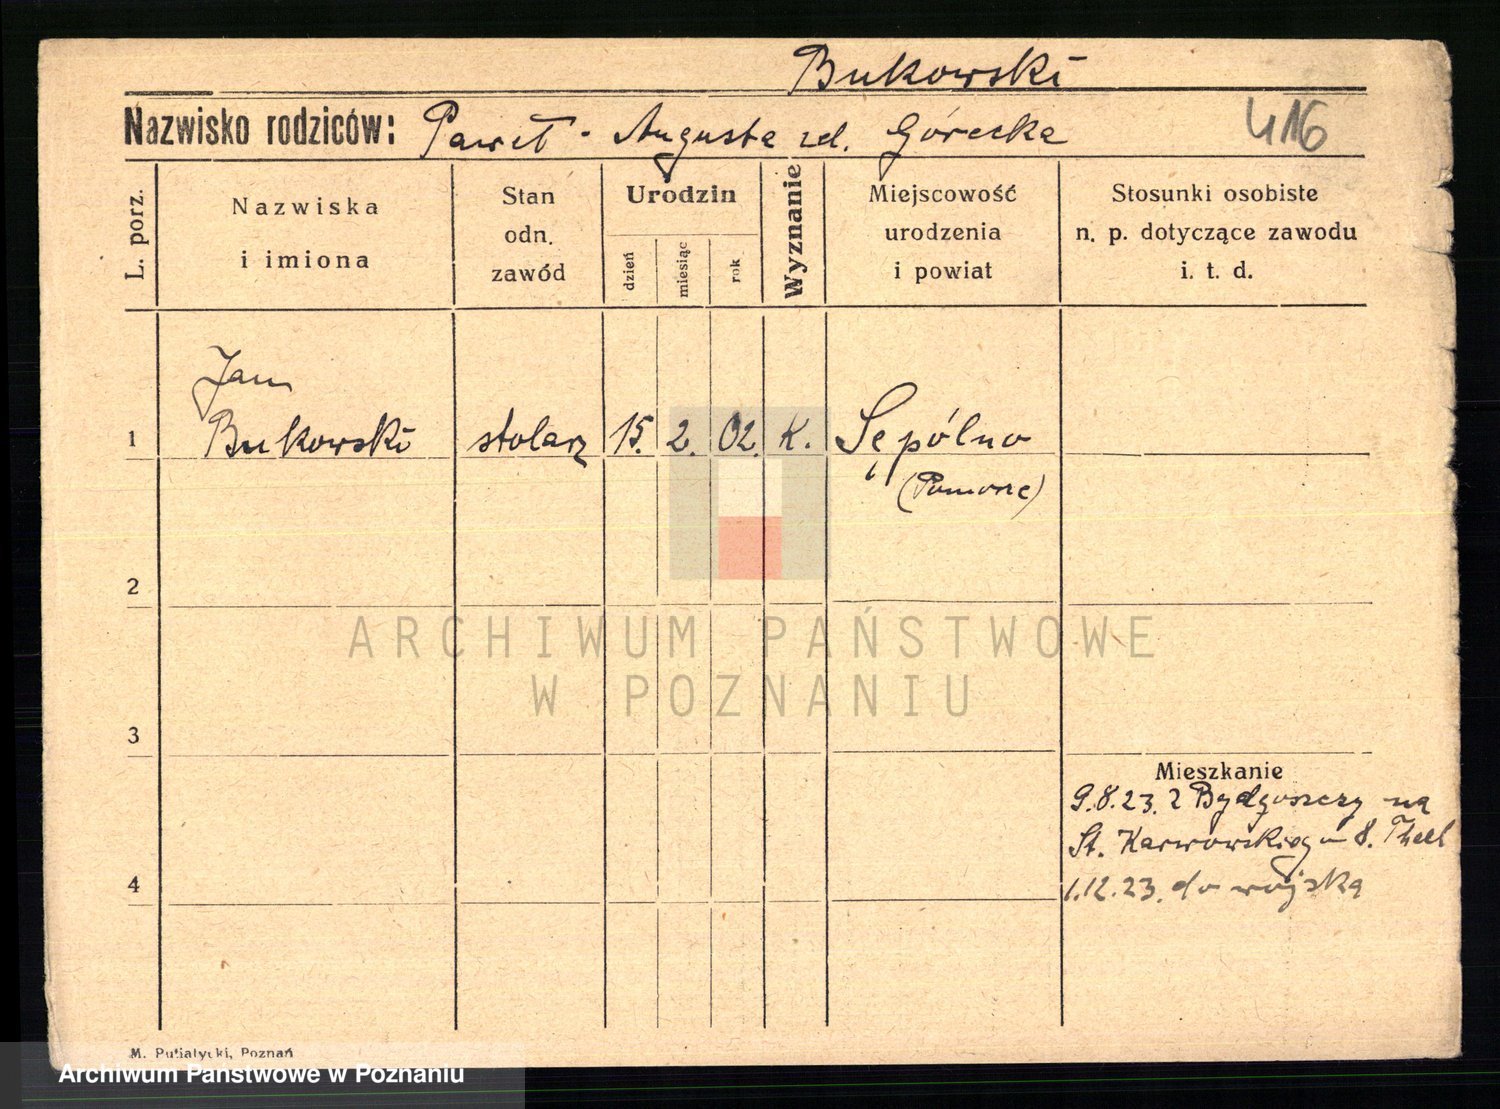 Bukowski
Nazwisko rodziców: Paweł - Augusta zd. Górecka
416
L. porz.
Nazwiska
i imiona
Stan
odn.
zawód
Urodzin
dzień
miesiąc
rok
Wyznanie
Miejscowość
urodzenia
i powiat
Stosunki osobiste
n. p. dotyczące zawodu
i. t. d.
Jan
1 Bukowski stolarz 15. 2. 02. K. Sępólno
(Pomorze)
2
3
4
Mieszkanie
9.8.23. z Bydgoszczy na
St. Karwowskiego 8.
1.12.23. do wojska
ARCHIWUM PAŃSTWOWE
W POZNANIU
M. Putiatycki, Poznań
Archiwum Państwowe w Poznaniu